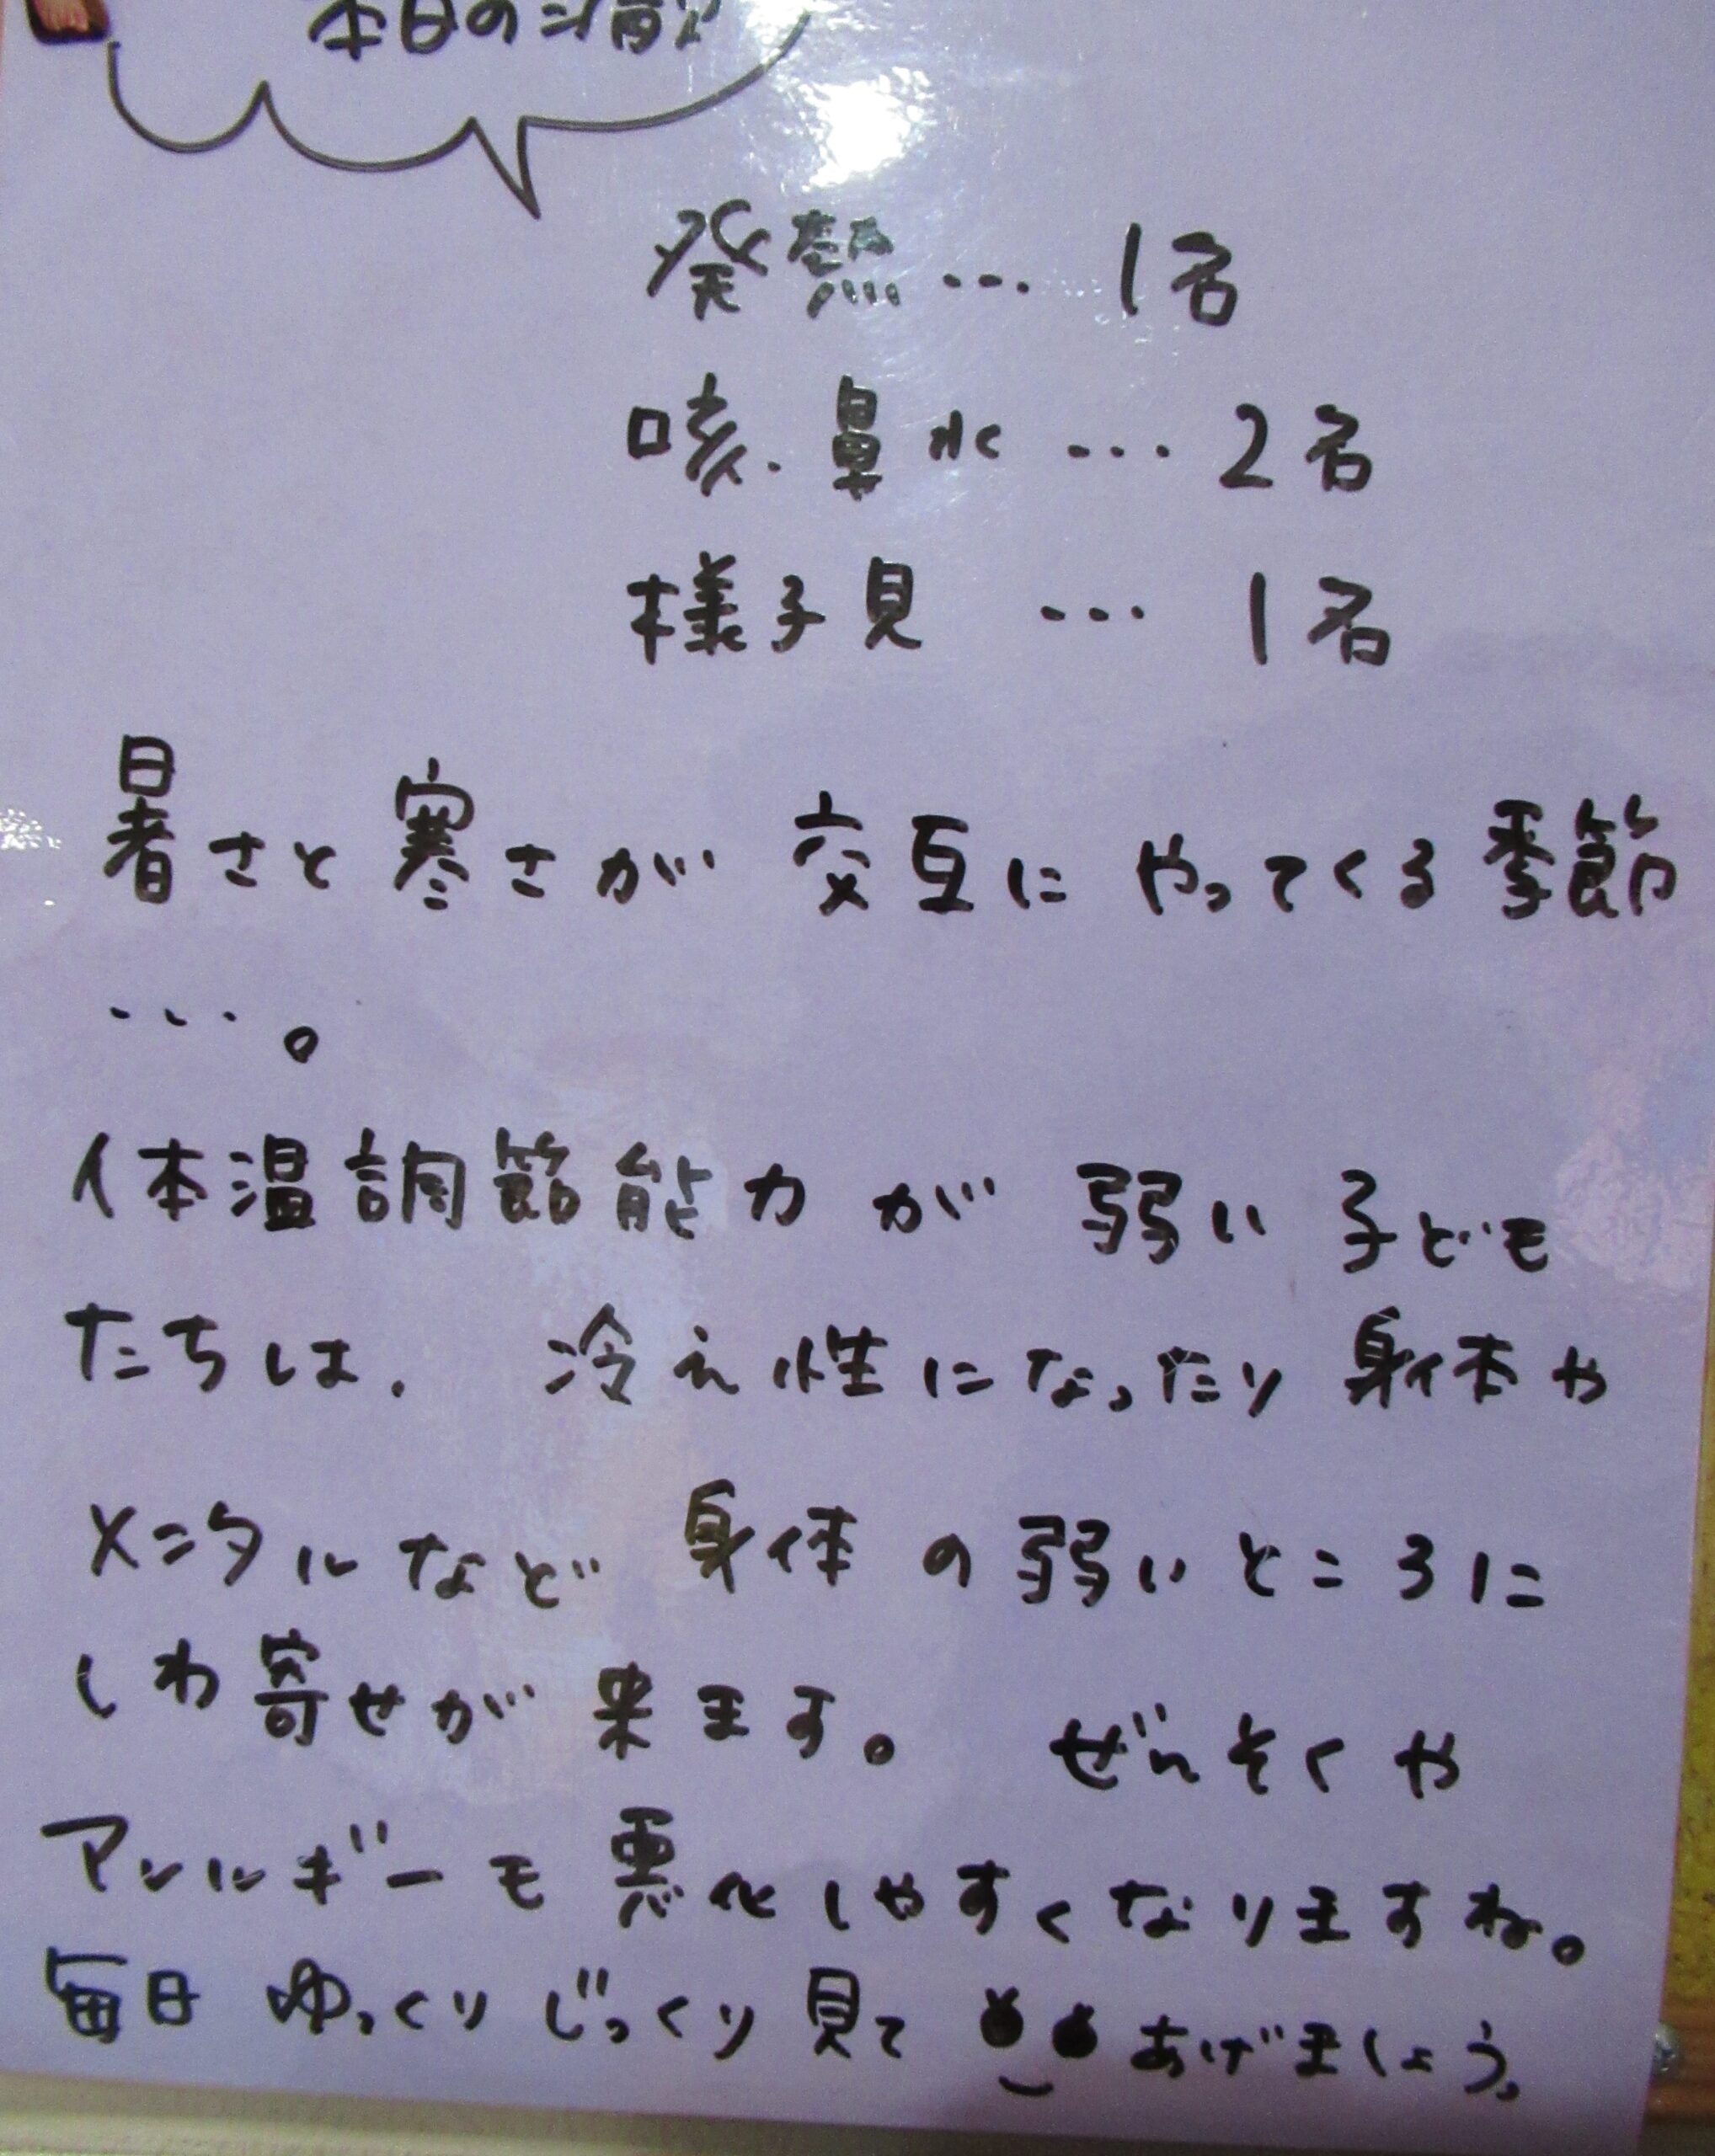 本日の
発熱… 1名
咳.鼻水 … 2名
様子見 … 1名
暑さと寒さが 交互に やってくる季節
….。
体温調節能力が 弱い 子ども
たちは、 冷え性になったり身体や
メンタルなど 身体の弱いところに
しわ寄せが来ます。 ぜんそくや
アレルギーも悪化しやすくなりますね。
毎日 ゆっくりじっくり見て あげましょう。